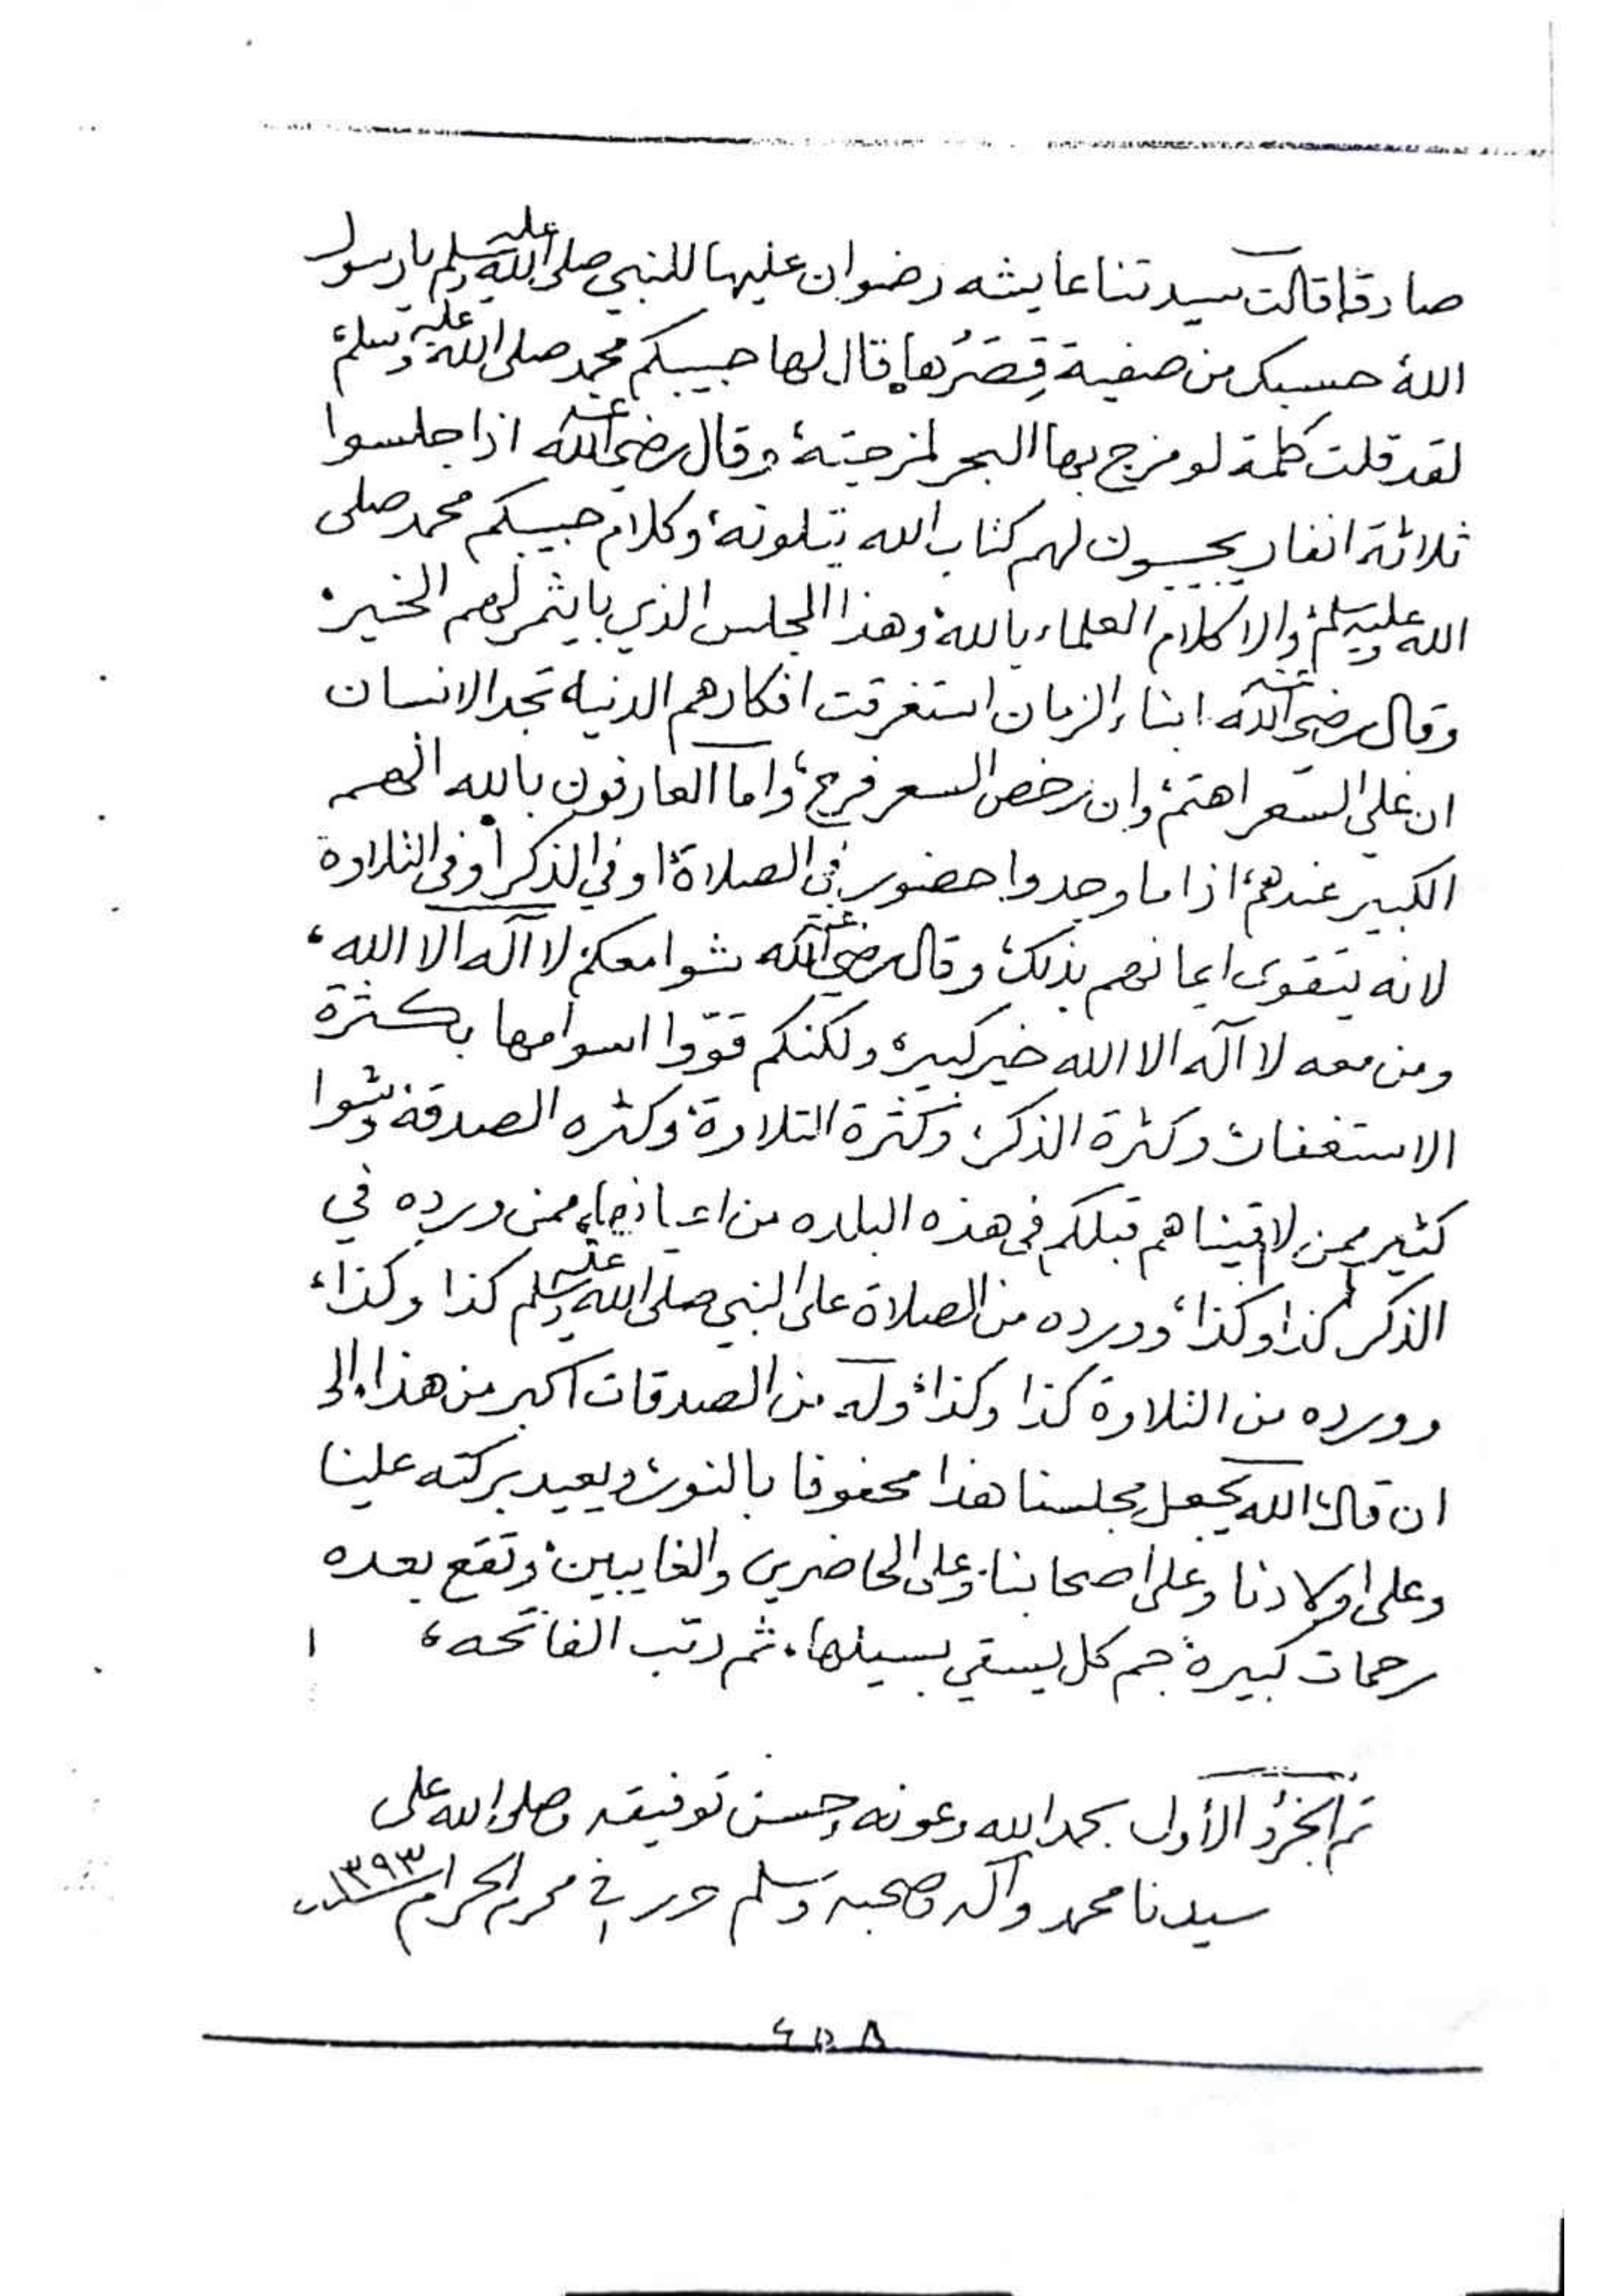 صادقه قالت سيدتنا عايشه رضوان عليها للنبي صلى الله عليه وسلم يا رسول
الله حسبك من صفية قِصَرُها، قال لها حبيبكم محمد صلى الله عليه وسلم
لقد قلت كلمة لو مزج بها البحر لمزجته، وقال رضي الله عنه اذا جلسوا
ثلاثة انفار يجيبون لهم كتاب الله يتلونه، وكلام حبيبكم محمد صلى
الله عليه وسلم، والا كلام العلماء بالله، وهذا المجلس الذي بايثمر لهم الخير،
وقال رضي الله عنه ابناء الزمان استغرقت افكارهم الدنيا، تجد الانسان
ان غلي السعر اهتم، وان رخص السعر فرح، واما العارفون بالله الهم
الكبير عندهم، اذا ما وجدوا حضور في الصلاة، او في الذكر أو في التلاوة
لانه يتقوى ايمانهم بذلك، وقال رضي الله عنه شوا معكم لا آله الا الله،
ومن معه لا آله الا الله خير كبير، ولكنكم قوّوا اسوامها بكثرة
الاستغفار، وكثرة الذكر، وكثرة التلاوة، وكثره الصدقة، وشوا
كثير ممن لاقيناهم قبلكم في هذه البلده من اعيانها، ممن ورده في
الذكر كذا وكذا، وورده من الصلاة على النبي صلى الله عليه وسلم كذا وكذا،
وورده من التلاوة كذا وكذا، وله من الصدقات اكبر من هذا، الى
ان قال، الله يجعل مجلسنا هذا محفوفا بالنور، ويعيد بركته علينا
وعلى اولادنا وعلى اصحابنا، وعلى الحاضرين والغايبين، وتقع بعده
رحمات كبيرة، جم كل يسقي بسيلها، ثم رتب الفاتحه،
تم الجزؤ الأول بحمد الله وعونه وحسن توفيقه وصلى الله على
سيدنا محمد وآله وصحبه وسلم حرر في محرم الحرام سنة ١٣٩٣